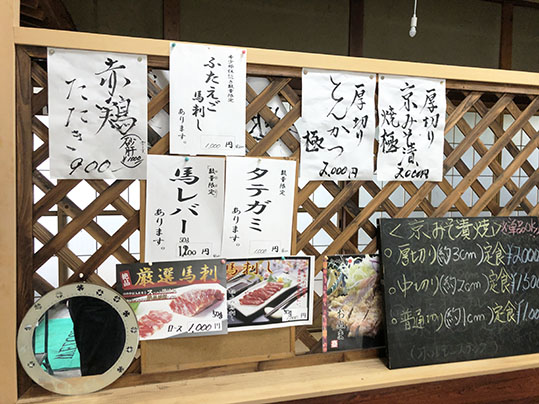 赤鶏
たたき
900
数量限定
ふたえご
馬刺し
あります。
1,000円
厚切り
とんかつ
極
2,000円
厚切り
京みそ漬
焼極
2,000円
数量限定
馬レバー
あります。
50g
1,200円
数量限定
タテガミ
あります。
円
厳選馬刺
ロース 1,000円
50g
馬刺し
<京みそ漬焼>
○厚切り(約3cm)定食¥2,000
○中切り(約2cm)定食¥1,500
○普通切り(約1cm)定食